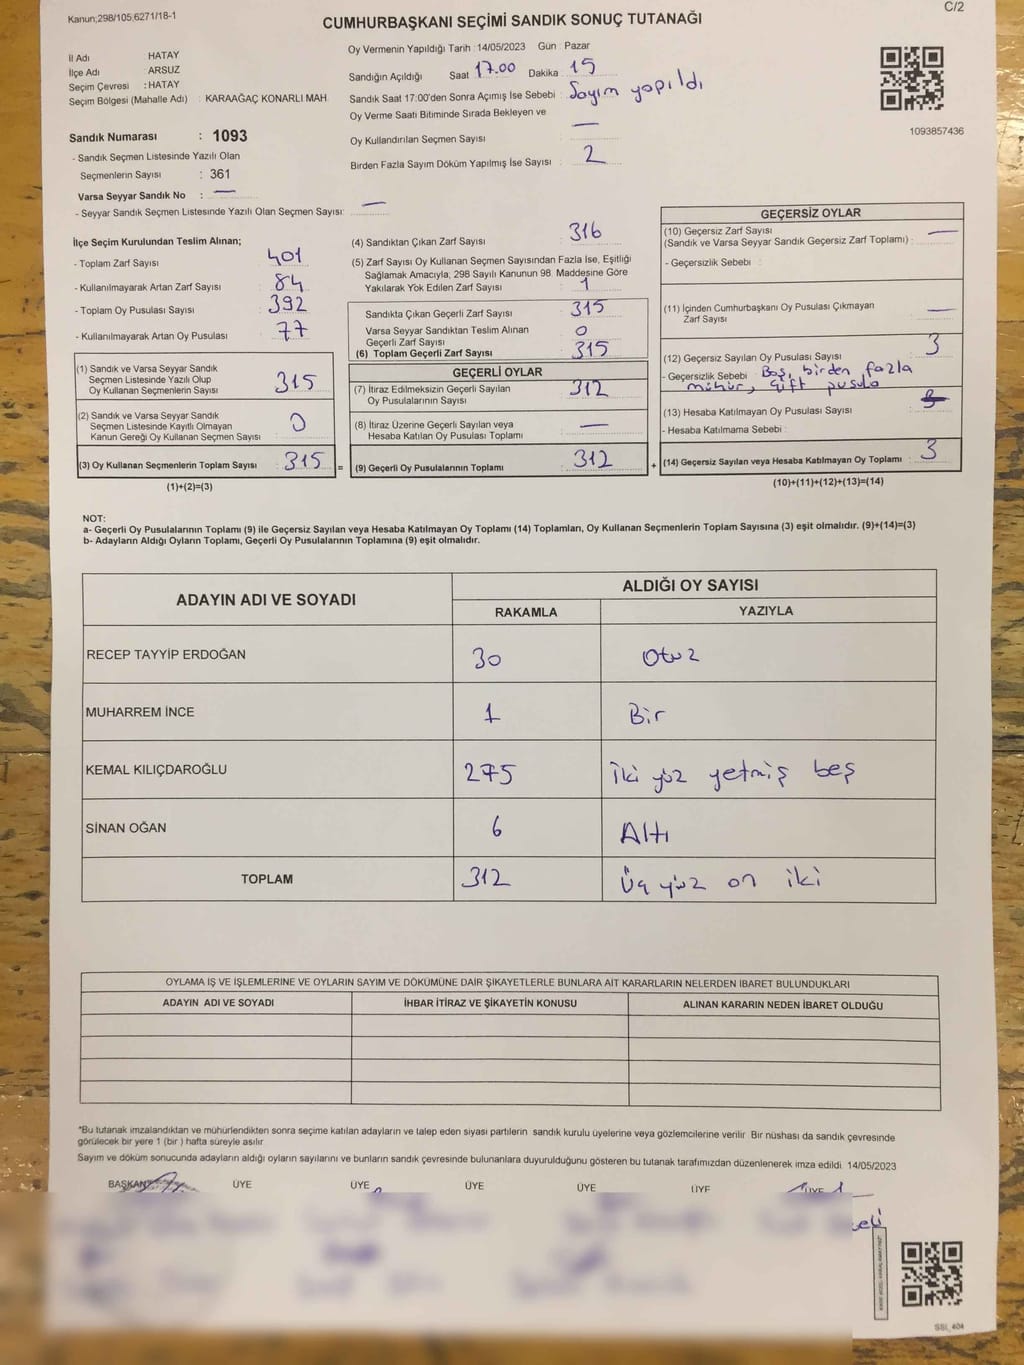 Kanun;298/105;6271/18-1
C/2
CUMHURBAŞKANI SEÇİMİ SANDIK SONUÇ TUTANAĞI
İl Adı : HATAY
İlçe Adı : ARSUZ
Seçim Çevresi : HATAY
Seçim Bölgesi (Mahalle Adı) : KARAAĞAÇ KONARLI MAH.
Sandık Numarası : 1093
- Sandık Seçmen Listesinde Yazılı Olan
Seçmenlerin Sayısı : 361
Varsa Seyyar Sandık No : —
- Seyyar Sandık Seçmen Listesinde Yazılı Olan Seçmen Sayısı: —
Oy Vermenin Yapıldığı Tarih : 14/05/2023 Gün : Pazar
Sandığın Açıldığı Saat 17.00 Dakika : 15
Sandık Saat 17:00'den Sonra Açımış İse Sebebi : Sayım yapıldı
Oy Verme Saati Bitiminde Sırada Bekleyen ve
Oy Kullandırılan Seçmen Sayısı : —
Birden Fazla Sayım Döküm Yapılmış İse Sayısı : 2
1093857436
İlçe Seçim Kurulundan Teslim Alınan;
- Toplam Zarf Sayısı : 401
- Kullanılmayarak Artan Zarf Sayısı : 84
- Toplam Oy Pusulası Sayısı : 392
- Kullanılmayarak Artan Oy Pusulası : 77
(1) Sandık ve Varsa Seyyar Sandık
Seçmen Listesinde Yazılı Olup
Oy Kullanan Seçmenlerin Sayısı : 315
(2) Sandık ve Varsa Seyyar Sandık
Seçmen Listesinde Kayıtlı Olmayan
Kanun Gereği Oy Kullanan Seçmen Sayısı : 0
(3) Oy Kullanan Seçmenlerin Toplam Sayısı : 315
(1)+(2)=(3)
(4) Sandıktan Çıkan Zarf Sayısı : 316
(5) Zarf Sayısı Oy Kullanan Seçmen Sayısından Fazla İse, Eşitliği
Sağlamak Amacıyla; 298 Sayılı Kanunun 98. Maddesine Göre
Yakılarak Yok Edilen Zarf Sayısı : 1
Sandıkta Çıkan Geçerli Zarf Sayısı : 315
Varsa Seyyar Sandıktan Teslim Alınan
Geçerli Zarf Sayısı : 0
(6) Toplam Geçerli Zarf Sayısı : 315
GEÇERLİ OYLAR
(7) İtiraz Edilmeksizin Geçerli Sayılan
Oy Pusulalarının Sayısı : 312
(8) İtiraz Üzerine Geçerli Sayılan veya
Hesaba Katılan Oy Pusulası Toplamı : —
= (9) Geçerli Oy Pusulalarının Toplamı : 312
GEÇERSİZ OYLAR
(10) Geçersiz Zarf Sayısı
(Sandık ve Varsa Seyyar Sandık Geçersiz Zarf Toplamı) : —
- Geçersizlik Sebebi :
(11) İçinden Cumhurbaşkanı Oy Pusulası Çıkmayan
Zarf Sayısı : —
(12) Geçersiz Sayılan Oy Pusulası Sayısı : 3
- Geçersizlik Sebebi : Boş, birden fazla
mühür, çift pusula
(13) Hesaba Katılmayan Oy Pusulası Sayısı :
- Hesaba Katılmama Sebebi :
+ (14) Geçersiz Sayılan veya Hesaba Katılmayan Oy Toplamı : 3
(10)+(11)+(12)+(13)=(14)
NOT:
a- Geçerli Oy Pusulalarının Toplamı (9) ile Geçersiz Sayılan veya Hesaba Katılmayan Oy Toplamı (14) Toplamları, Oy Kullanan Seçmenlerin Toplam Sayısına (3) eşit olmalıdır. (9)+(14)=(3)
b- Adayların Aldığı Oyların Toplamı, Geçerli Oy Pusulalarının Toplamına (9) eşit olmalıdır.
ADAYIN ADI VE SOYADI ALDIĞI OY SAYISI
RAKAMLA YAZIYLA
RECEP TAYYİP ERDOĞAN 30 Otuz
MUHARREM İNCE 1 Bir
KEMAL KILIÇDAROĞLU 275 İki yüz yetmiş beş
SİNAN OĞAN 6 Altı
TOPLAM 312 Üç yüz on iki
OYLAMA İŞ VE İŞLEMLERİNE VE OYLARIN SAYIM VE DÖKÜMÜNE DAİR ŞİKAYETLERLE BUNLARA AİT KARARLARIN NELERDEN İBARET BULUNDUKLARI
ADAYIN ADI VE SOYADI İHBAR İTİRAZ VE ŞİKAYETİN KONUSU ALINAN KARARIN NEDEN İBARET OLDUĞU
*Bu tutanak imzalandıktan ve mühürlendikten sonra seçime katılan adayların ve talep eden siyasi partilerin sandık kurulu üyelerine veya gözlemcilerine verilir. Bir nüshası da sandık çevresinde
görülecek bir yere 1 (bir ) hafta süreyle asılır.
Sayım ve döküm sonucunda adayların aldığı oyların sayılarını ve bunların sandık çevresinde bulunanlara duyurulduğunu gösteren bu tutanak tarafımızdan düzenlenerek imza edildi. 14/05/2023
BAŞKAN ÜYE ÜYE ÜYE ÜYE ÜYE ÜYE
SSI_404